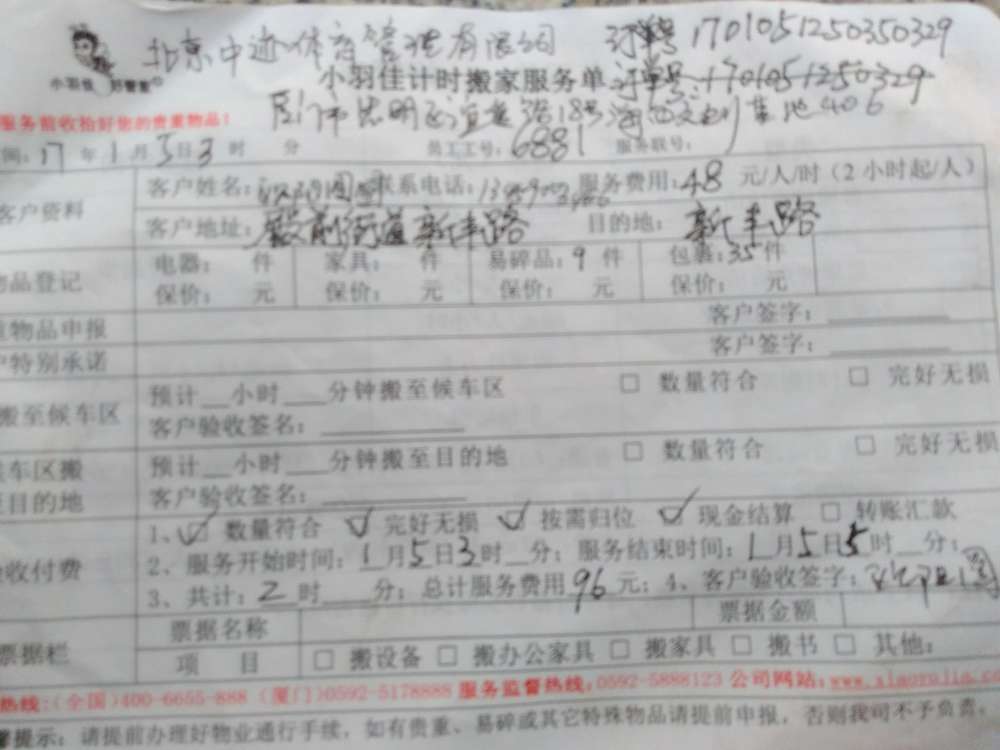 北京中 体育管理有限公司 订单号 170105125035 0329
小羽佳 好管家 小羽佳计时搬家服务单 订单号:170105125 0329
服务前收拾好您的贵重物品！ 厦门市 明 路18号 文创 基地 406
间：17 年 1 月 5 日 3 时 分 员工工号：6881 服务联号：
客户资料 客户姓名： 联系电话： 服务费用：48 元/人/时（2 小时起/人）
客户地址：殿前街道新丰路 目的地：新丰路
物品登记 电器： 件 家具： 件 易碎品：9 件 包裹：35 件
保价： 元 保价： 元 保价： 元 保价： 元
物品申报 客户签字：
户特别承诺 客户签字：
搬至候车区 预计__小时___分钟搬至候车区 □ 数量符合 □ 完好无损
客户验收签名：
车区搬 预计__小时___分钟搬至目的地 □ 数量符合 □ 完好无损
至目的地 客户验收签名：
收付费 1、☑ 数量符合 ☑ 完好无损 ☑ 按需归位 ☑ 现金结算 □ 转账汇款
2、服务开始时间：1 月 5 日 3 时__分；服务结束时间：1 月 5 日 5 时__分；
3、共计：2 时___分；总计服务费用 96 元；4、客户验收签字：
票据栏 票据名称 票据金额
项 目 □ 搬设备 □ 搬办公家具 □ 搬家具 □ 搬书 □ 其他：
热线：（全国）400-6655-888（厦门）0592-5178888 服务监督热线：0592-5888123 公司网站：www.xiaoyujia.com
提示：请提前办理好物业通行手续，如有贵重、易碎或其它特殊物品请提前申报，否则我司不予负责，